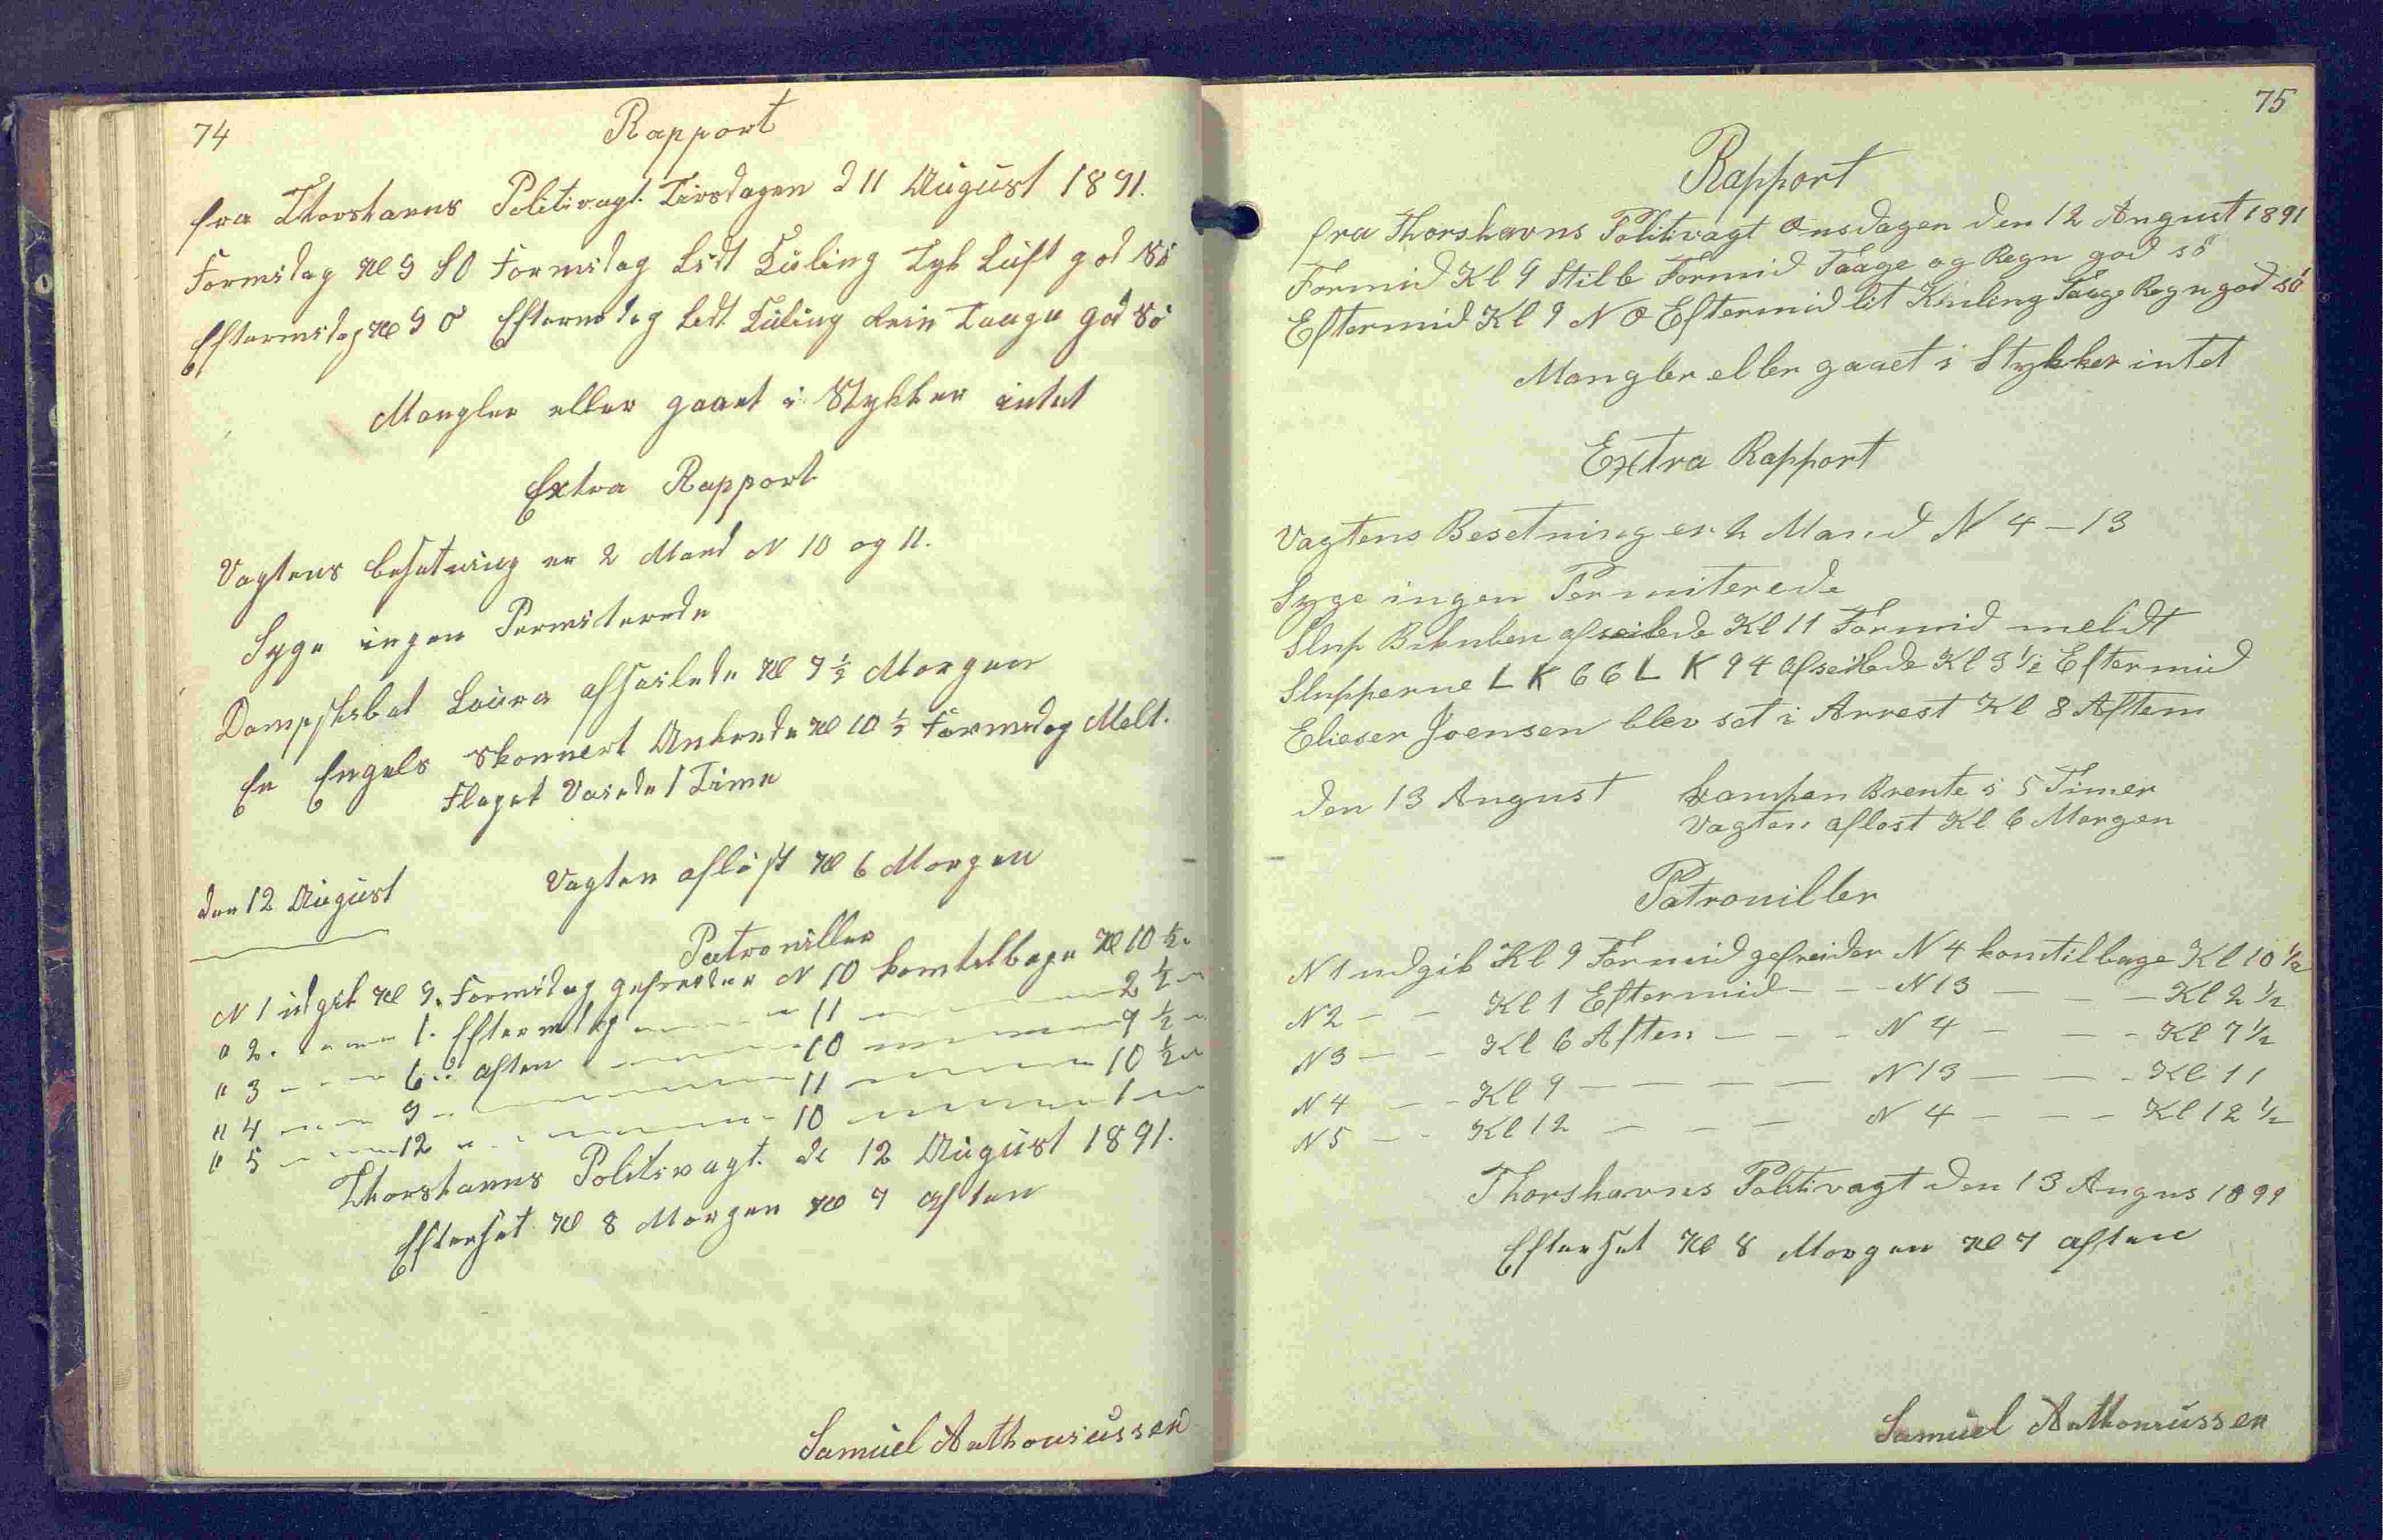 74
Rapport
fra Thorshavns Politivagt. Tirsdagen d 11 August 1891.
Formidag Kl 9 SO Formidag Lidt Kuling Tyk Luft god Sö
Eftermidag Kl 9 O Eftermidag Lidt Kuling Rein Taage god Sö
Mangler eller gaaet i Stykker intet
Extra Rapport
Vagtens besetning er 2 Mand N 10 og 11.
Syge ingen Permiterede
Dampskibet Laura afseilede Kl 7½ Morgen
En Engels Skonnert Ankrede Kl 10½ Formidag Melt.
Flaget Vaiede 1 Time
den 12 August
Vagten aflöst Kl 6 Morgen
Patroniller
N 1 udgik Kl 9. Formidag gefreider N 10 kom tilbage Kl 10½.
" 2. 1. Eftermidag 11 2½
" 3 6 aften 10 7½
" 4 9 11 10½
" 5 12 10 1
Thorshavns Politivagt. d. 12 August 1891.
Efterset Kl 8 Morgen Kl 7 aften
Samuel Anthoniussen
75
Rapport
fra Thorshavns Politivagt Onsdagen den 12 August 1891
Formid Kl 9 Stille Formid Taage og Regn god sö
Eftermid Kl 9 N O Eftermid lit Kuling Taage Regn god sö
Mangler eller gaaet i Stykker intet
Extra Rapport
Vagtens Besetning er 2 Mand N 4 - 13
Syge ingen Permiterede
Slup Bikuben afseilede Kl 11 Formid meldt
Slupperne L K 66 L K 94 afseilede Kl 3½ Eftermid
Elieser Joensen blev sat i Arrest Kl 8 Aften
den 13 August Lampen Brente i 5 Timer
Vagten aflost Kl 6 Morgen
Patrouiller
N 1 udgik Kl 9 Formid gefreider N 4 kom tilbage Kl 10½
N 2 - - Kl 1 Eftermid - - N 13 - - - Kl 2½
N 3 - - Kl 6 Aften - - - N 4 - - - Kl 7½
N 4 - - Kl 9 - - - - N 13 - - - Kl 11
N 5 - - Kl 12 - - - N 4 - - - Kl 12½
Thorshavns Politivagt den 13 Augus 1899
Efterset Kl 8 Morgen Kl 7 aften
Samuel Anthoniussen